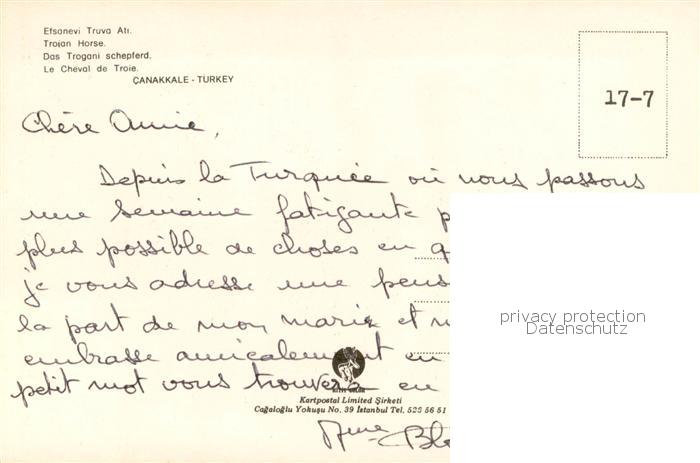 Efsanevi Truva Atı.
Trojan Horse.
Das Trogani schepferd.
Le Cheval de Troie.
ÇANAKKALE - TURKEY
17-7
Chère Annie,
Depuis la Turquie où nous passons
une semaine fatigante
plus possible de choses en
je vous adresse une
la part de mon mari et
embrasse amicalement en
petit mot vous trouvera en
privacy protection
Datenschutz
Kartpostal Limited Şirketi
Cağaloğlu Yokuşu No. 39 İstanbul Tel. 526 56 51
Mme